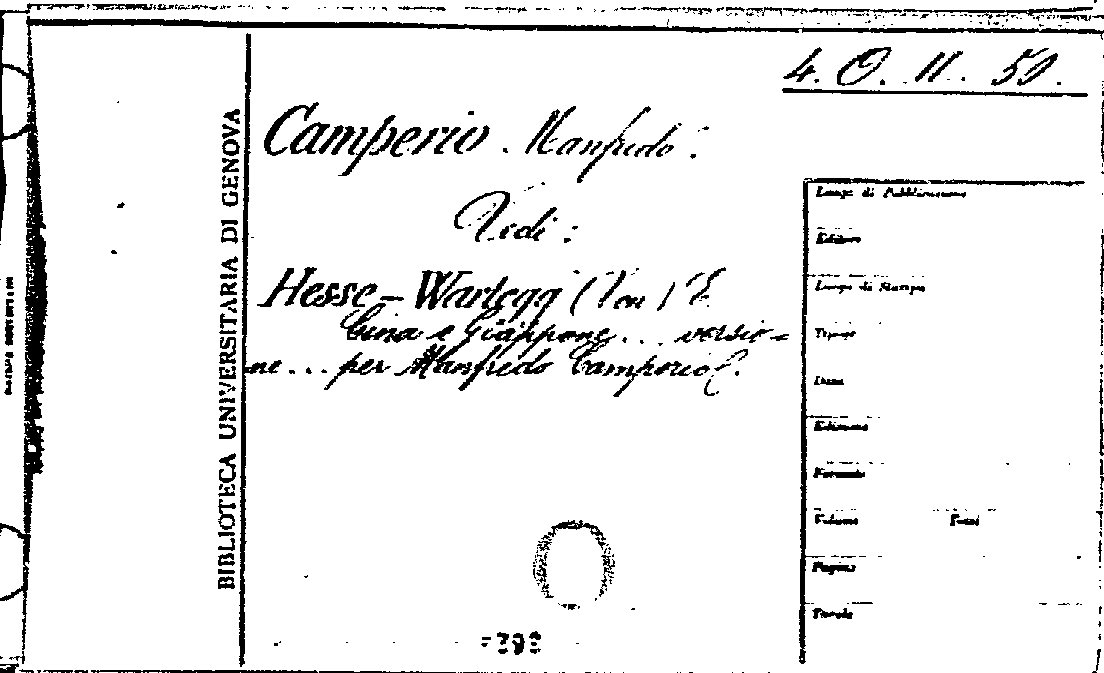 4. O. II. 50.
BIBLIOTECA UNIVERSITARIA DI GENOVA
Camperio Manfredo.
Vedi:
Hesse-Wartegg (Von) E.
Cina e Giappone... versio=
ne... per Manfredo Camperio.
Luogo di Pubblicazione
Editore
Luogo di Stampa
Tipogr.
Data
Edizione
Formato
Volume Fasci
Pagine
Tavole